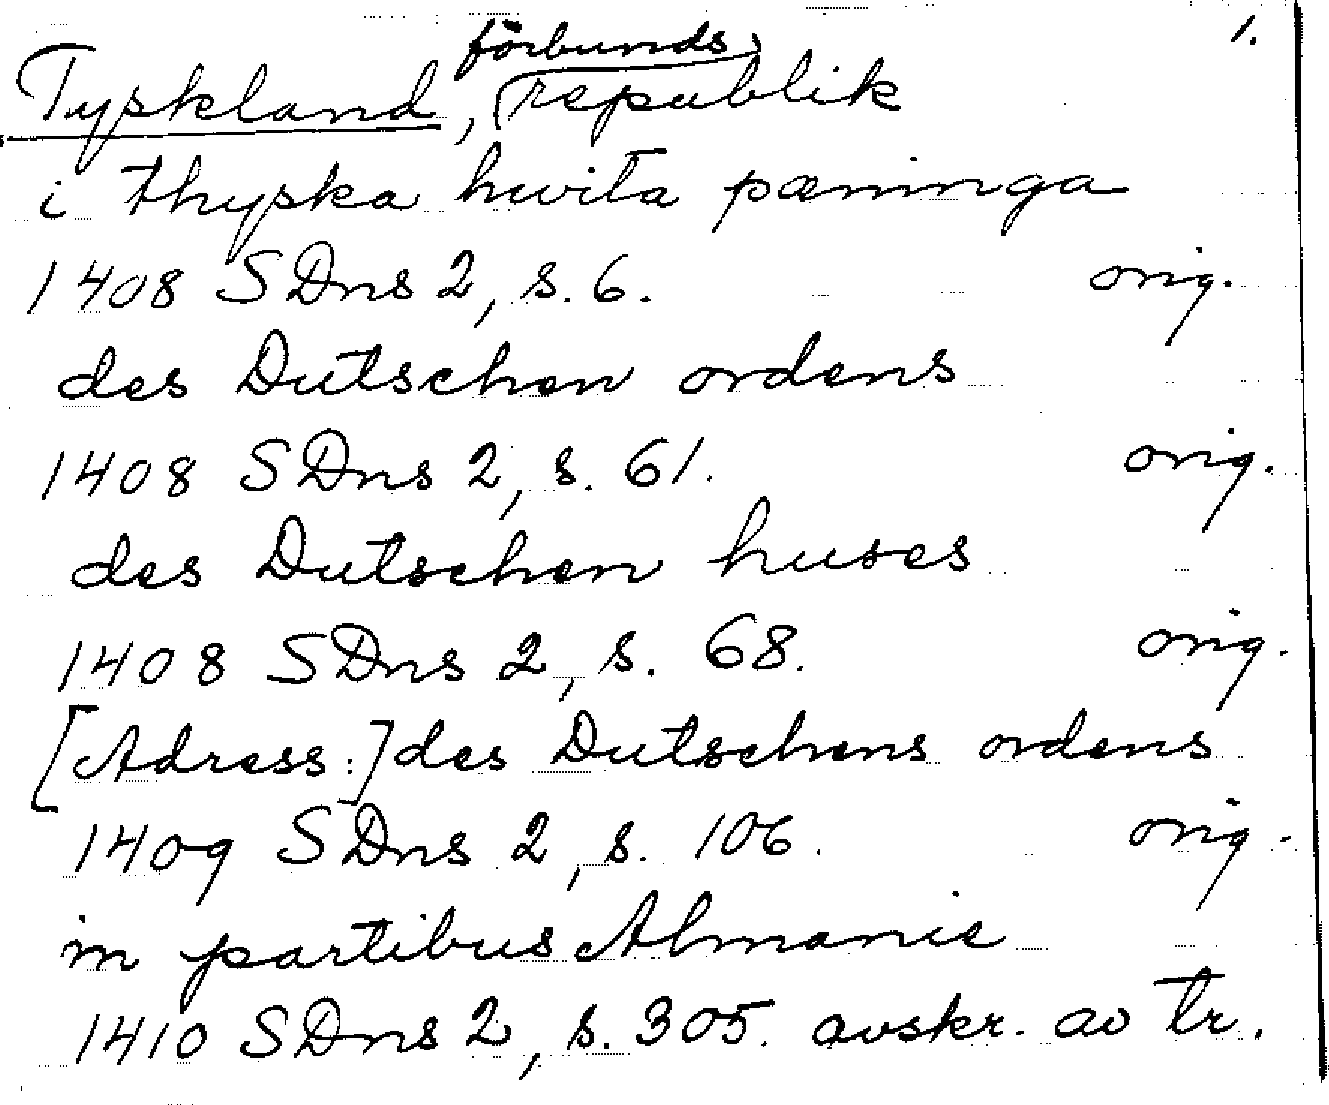 1.
Tyskland, förbundsrepublik
i thyska hwita pæninga
1408 SDns 2, s. 6. orig.
des Dutschen ordens
1408 SDns 2, s. 61. orig.
des Dutschen huses
1408 SDns 2, s. 68. orig.
[Adress:] des Dutschens ordens
1409 SDns 2, s. 106. orig.
in partibus Almanie
1410 SDns 2, s. 305. avskr. av tr.